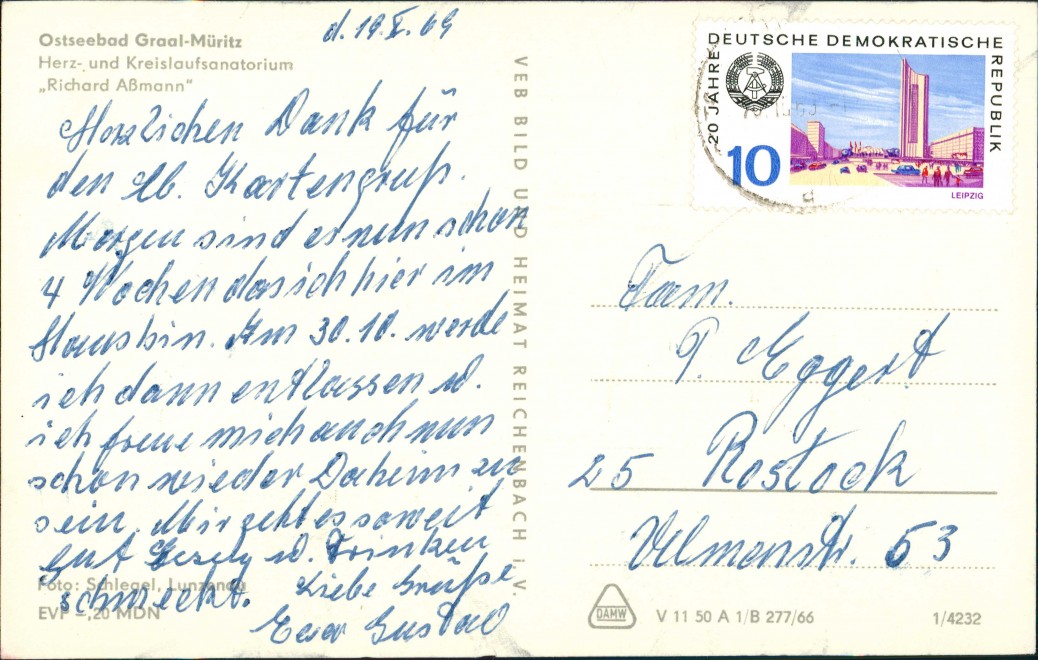 Ostseebad Graal-Müritz
Herz- und Kreislaufsanatorium
„Richard Aßmann"
d. 19.X.69
Herzlichen Dank für
den lb. Kartengruß.
Morgen sind es nun schon
4 Wochen das ich hier im
Haus bin. Am 30.10. werde
ich dann entlassen u.
ich freue mich auch nun
schon wieder Daheim zu
sein. Mir geht es soweit
gut Essen u. Trinken
schmeckt. Liebe Grüße
Euer Gustav
Foto: Schlegel, Lunzenau
EVP -,20 MDN
VEB BILD UND HEIMAT REICHENBACH i. V.
20 JAHRE DEUTSCHE DEMOKRATISCHE REPUBLIK
10
LEIPZIG
Fam.
P. Eggert
25 Rostock
Ulmenstr. 53
DAMW
V 11 50 A 1/B 277/66
1/4232